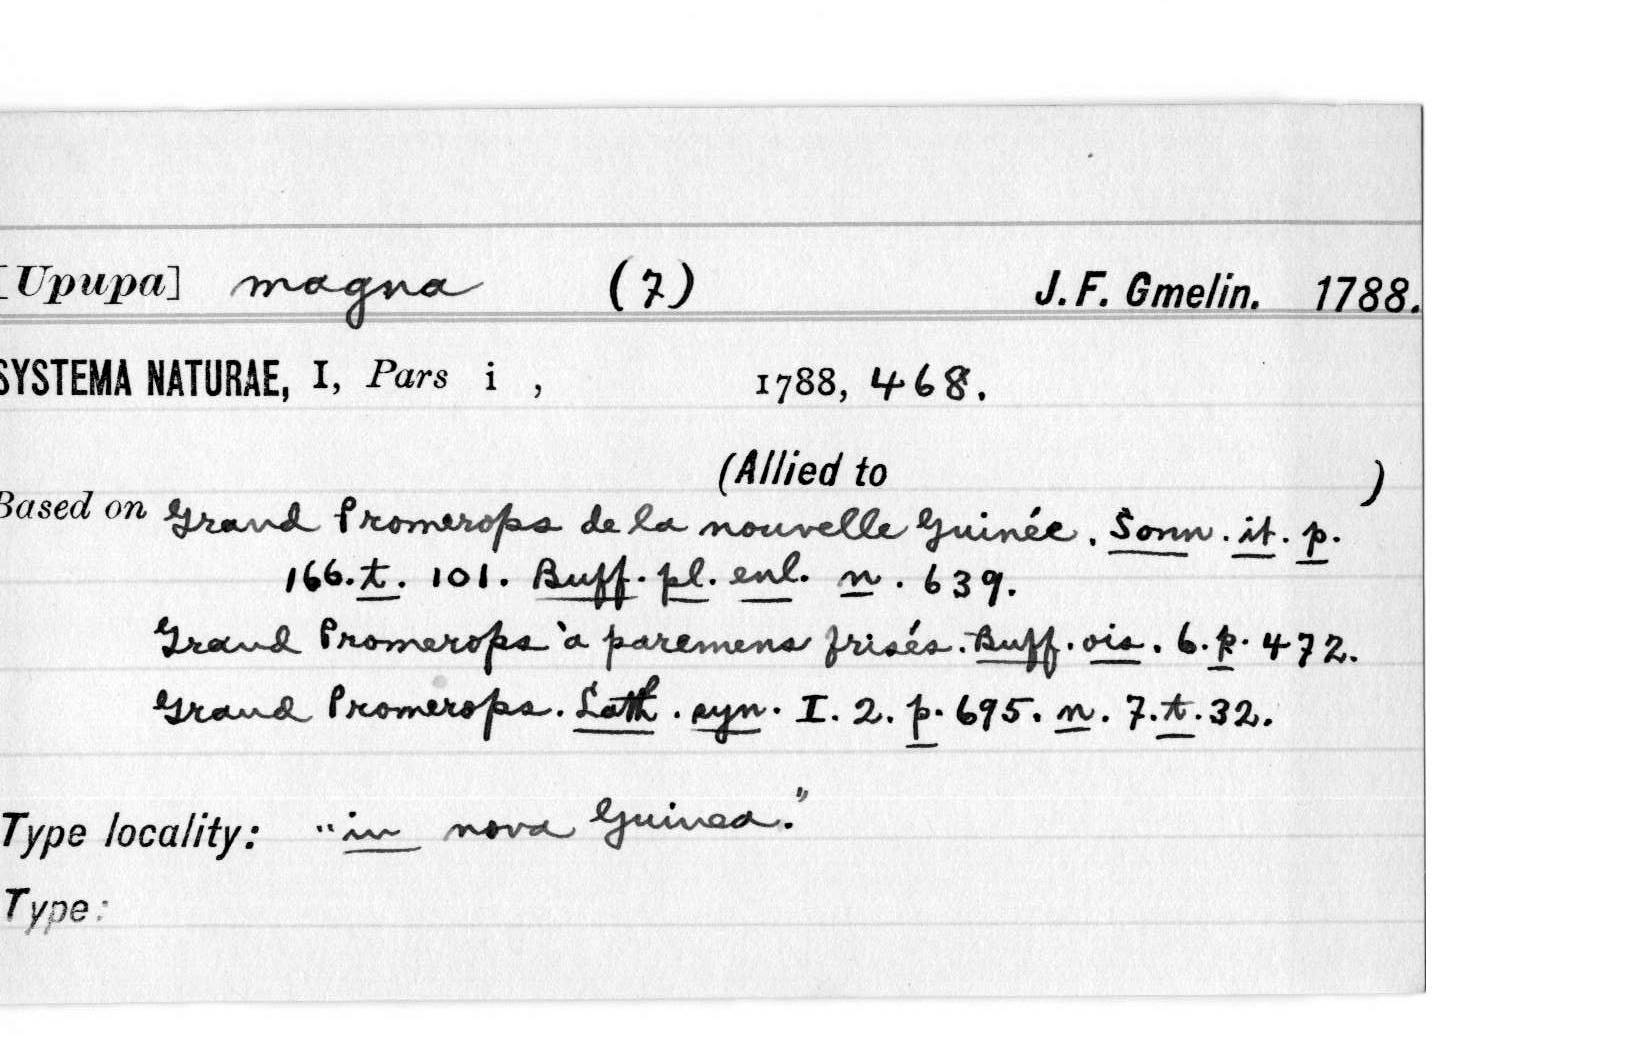 [Upupa] magna (7) J. F. Gmelin. 1788.
SYSTEMA NATURAE, I, Pars i , 1788, 468.
(Allied to )
Based on Grand Promerops de la nouvelle Guinée. Sonn. it. p.
166. t. 101. Buff. pl. enl. n. 639.
Grand Promerops à paremens frisés. Buff. ois. 6. p. 472.
Grand Promerops. Lath. syn. I. 2. p. 695. n. 7. t. 32.
Type locality: "in nova Guinea."
Type: